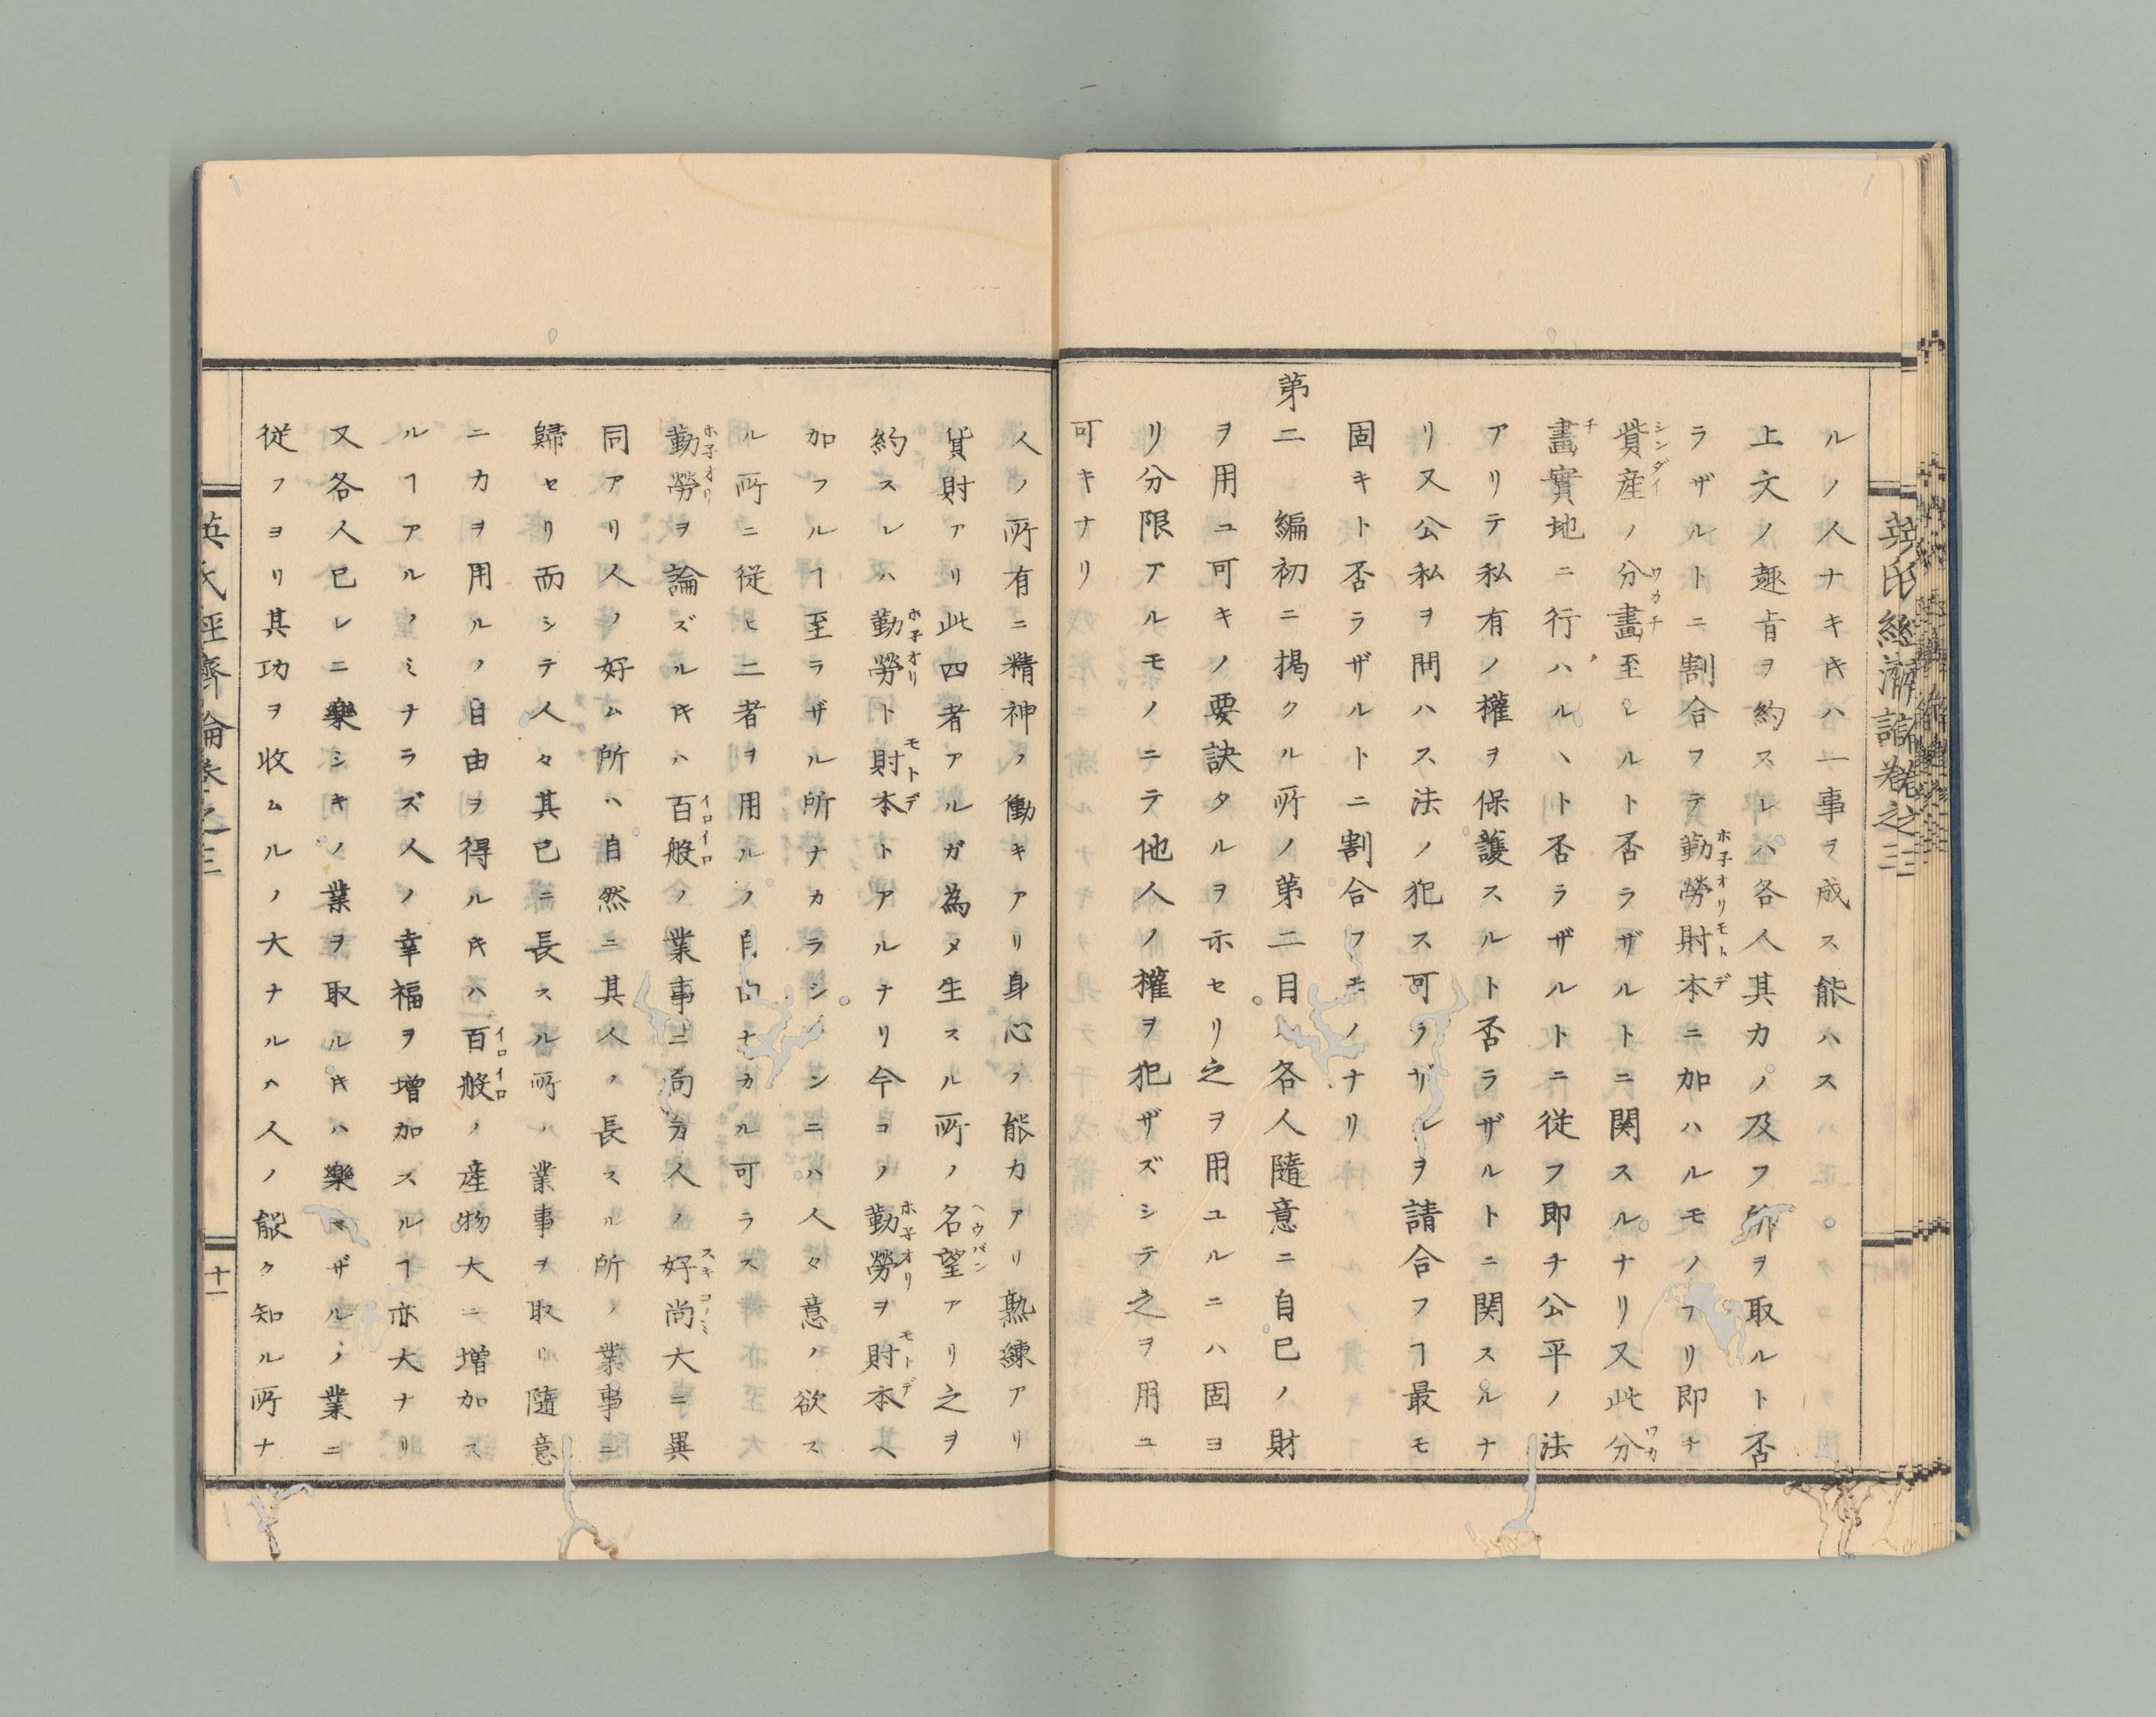 ルノ人ナキ𪜈ハ一事ヲ成ス能ハス
上文ノ趣旨ヲ約スレハ各人其力ノ及フ所ヲ取ルト否
ラザルトニ割合フテ勤勞財本ニ加ハルモノフリ即チ
貲産ノ分畫至レルト否ラザルトニ関スルナリ又此分
畫實地ニ行ハルヽト否ラザルトニ従フ即チ公平ノ法
アリテ私有ノ權ヲ保護スルト否ラザルトニ関スルナ
リ又公私ヲ問ハス法ノ犯ス可ラザルヲ請合フヿ最モ
固キト否ラザルトニ割合フモノナリ
第二 編初ニ掲クル所ノ第二目ハ各人隨意ニ自已ノ財
ヲ用ユ可キノ要訣タルヲ示セリ之ヲ用ユルニハ固ヨ
リ分限アルモノニテ他人ノ權ヲ犯ザズシテ之ヲ用ユ
可キナリ
人ノ所有ニ精神ノ働キアリ身心ノ能力アリ熟練アリ
貨財アリ此四者アルガ為メ生スル所ノ名望アリ之ヲ
約スレハ勤勞ト財本トアルナリ今コノ勤勞ヲ財本ヘ
加フルヿ至ラザル所ナカラシメンニハ人々意ノ欲ス
ル所ニ従ヒ二者ヲ用ルノ自由ナカル可ラス
勤勞ヲ論ズル𪜈ハ百般ノ業事ニ向ヲ人ノ好尚大ニ異
同アリ人ノ好ム所ハ自然ニ其人ノ長スル所ノ業事ニ
歸セリ而シテ人々其已ニ長スル所ノ業事ヲ取リ隨意
ニカヲ用ルノ自由ヲ得ル𪜈ハ百般ノ産物大ニ増加ス
ルヿアルノミナラズ人ノ幸福ヲ増加スルヿ亦大ナリ
又各人已レニ樂シキノ業ヲ取ル𪜈ハ樂マザルノ業ニ
従フヨリ其功ヲ收ムルノ大ナルハ人ノ能ク知ル所ナ
英氏經濟論卷之三
十一